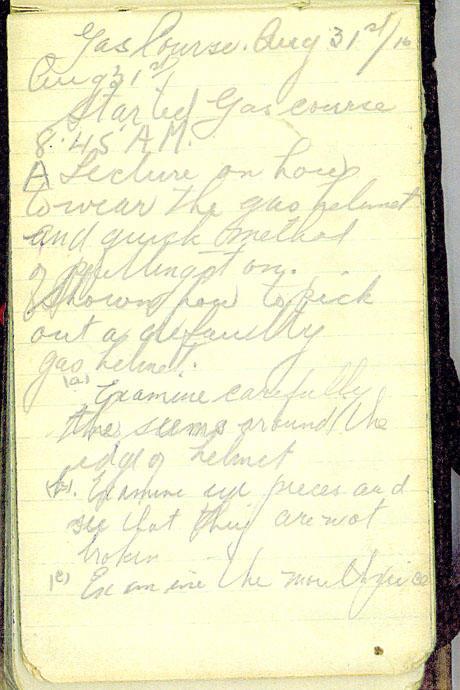 Gas Course. Aug 31st/16
Aug 31st/
Started Gas course
8.45 A.M.
A Lecture on how
to wear the gas helmet
and quick method
of putting it on.
Shown how to pick
out a defaulty
gas helmet.
(a) Examine carefully
the seems around the
edge of helmet
(b). Examine eye pieces and
see that they are not
broken
(c) Examine the mouthpiece